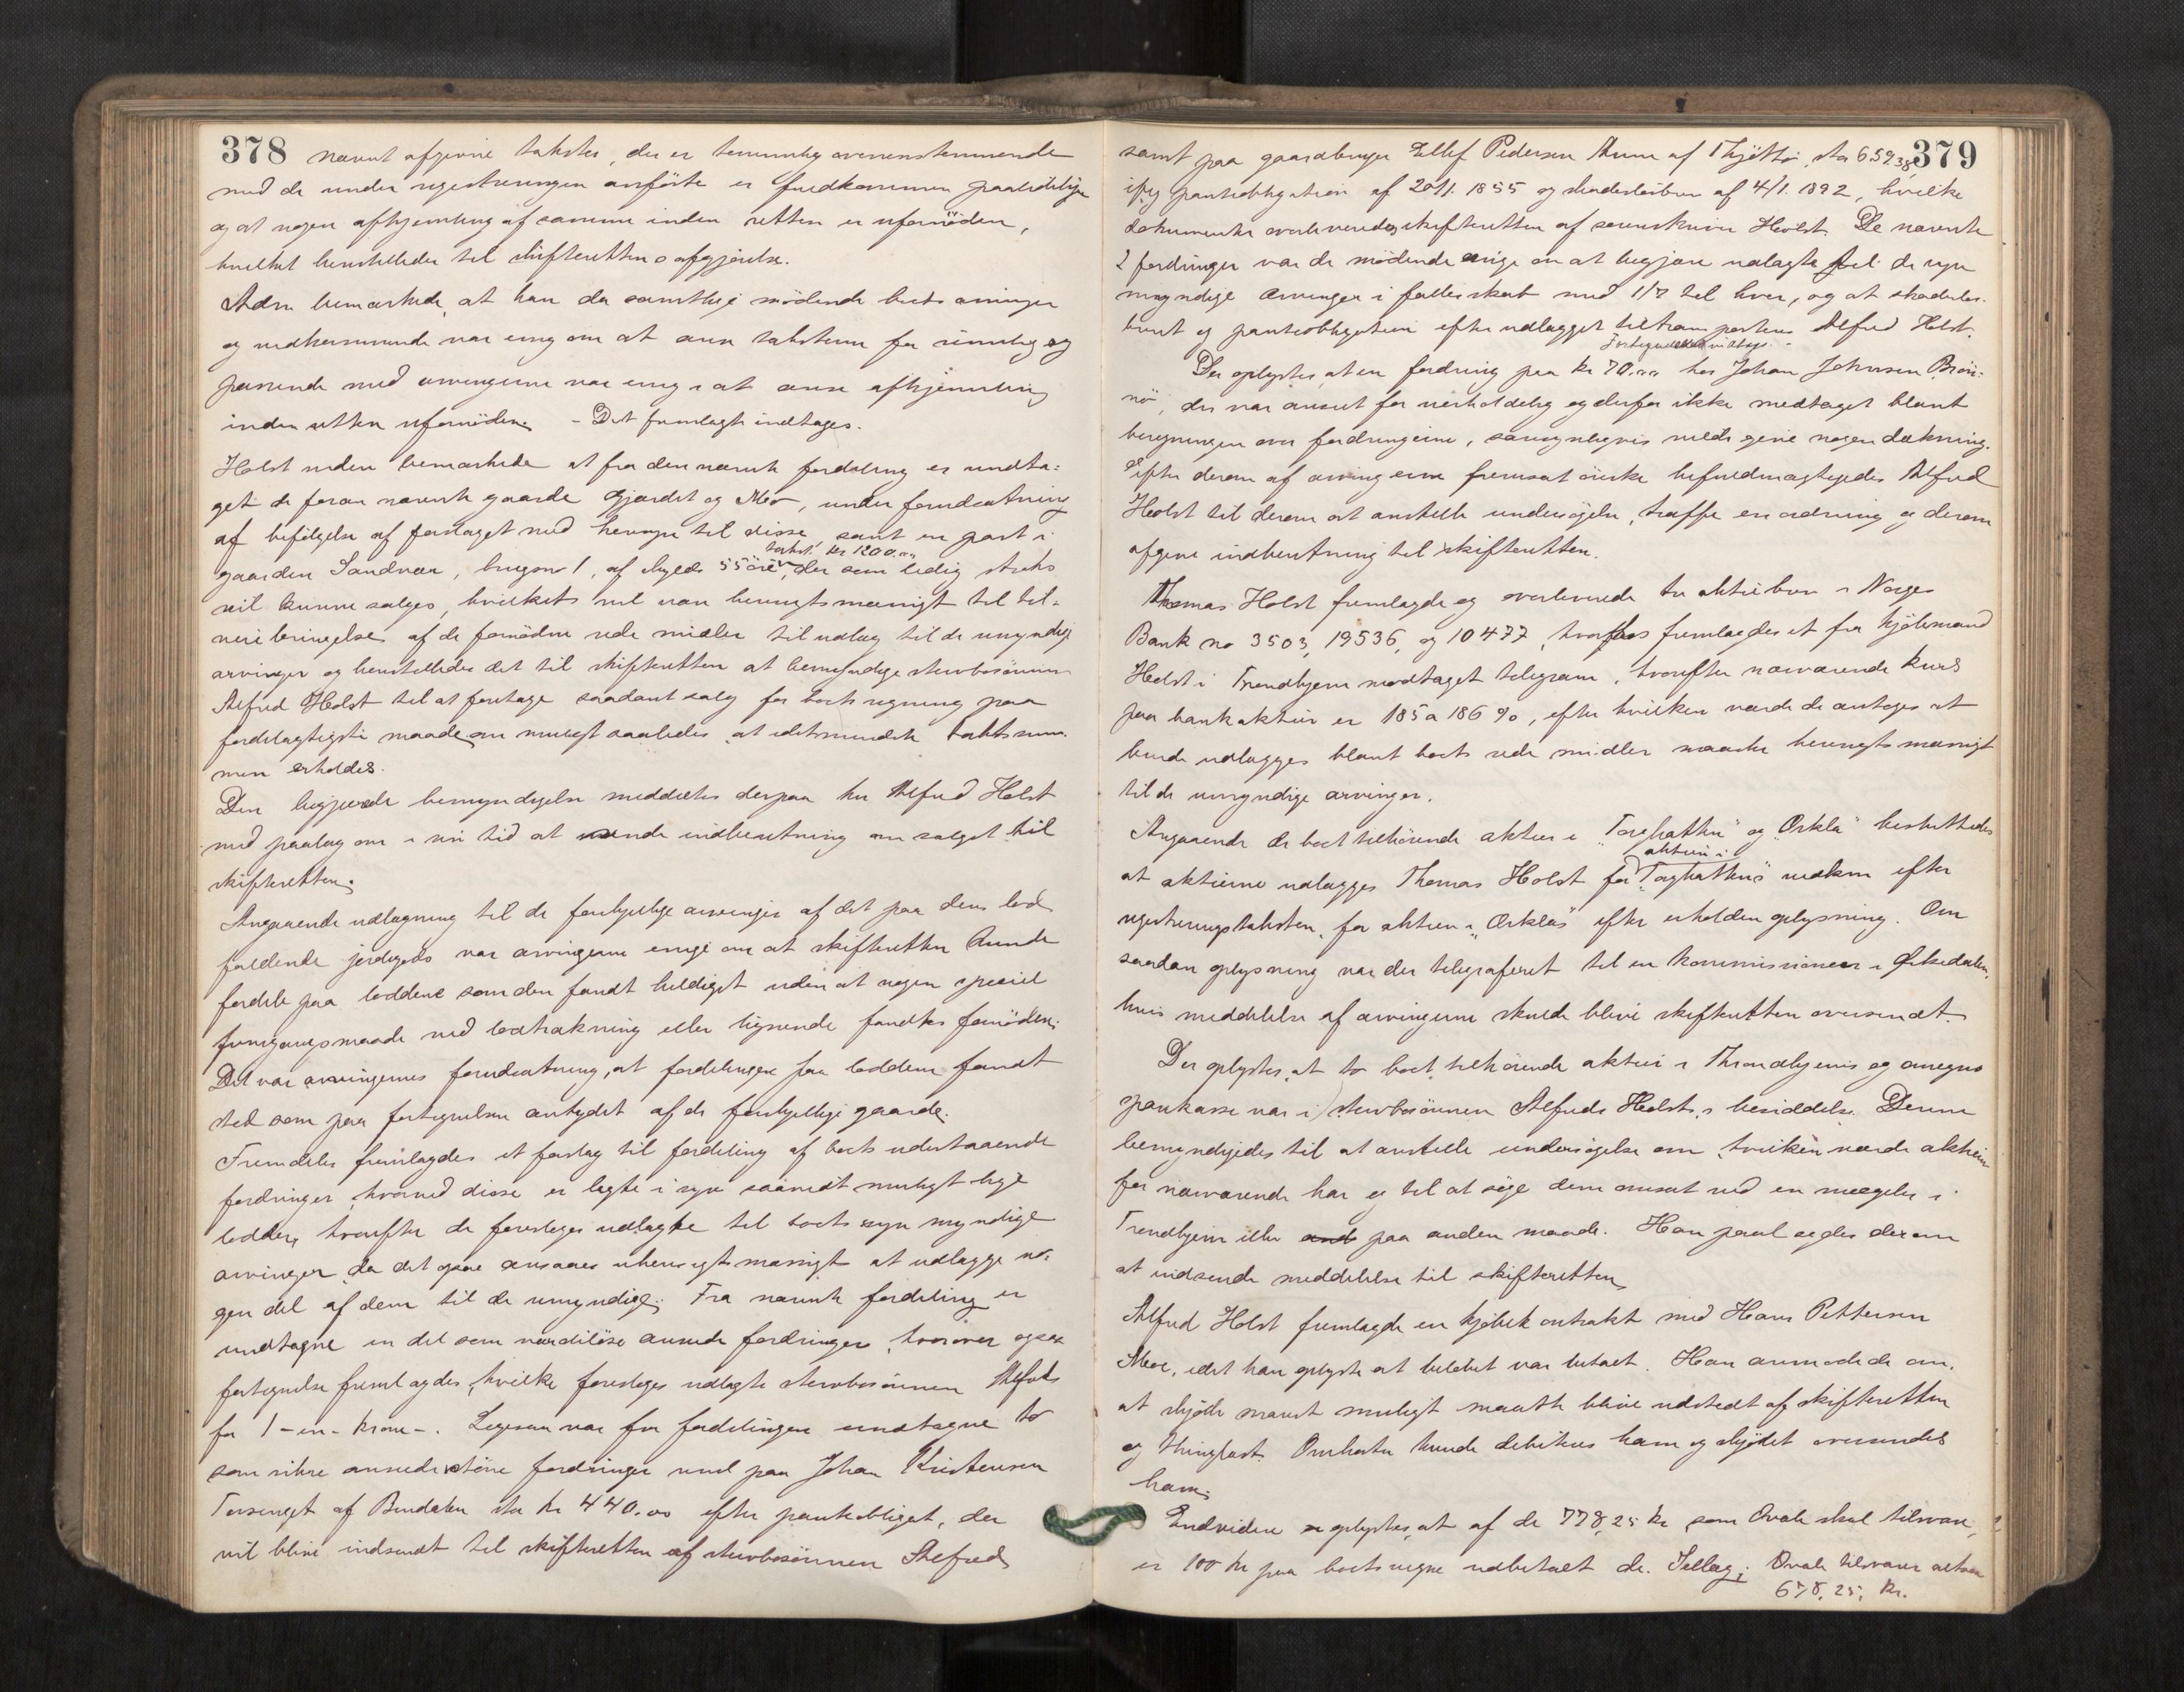 378
nævnt afgivne takster, der er temmelig overensstemmende
med de under registreringen anførte er fuldkommen paalidelige
og at nogen afhjemling af samme inden retten er ufornöden,
hvilket henstilledes til skifteretten s afgjörelse.
bemærkede, at han da samtlige mödende boets arvinger
og vedkommende var enig om at anse taksterne for rimelig og
passende med arvingerne var enig i at anse afhjemling
inden retten ufornöden. - Det fremlagte indtages.
Holst videre bemærkede at fra den nævnte fordeling er undta=
get de foran nævnte gaarde Gjærdet og Moe, under forudsætning
af befölgelse af forslaget med hensyn til disse samt en part i
takst kr 1200.00
gaarden Sandvær, brugsno 1, af skyld 55 öre, der som ledig straks
vil kunne sælges, hvilket vil være hensigtsmæssigt til til-
veiebringelse af de fornödne rede midler til udlæg til de umyndige
arvinger og henstilledes det til skifteretten at bemyndige stervbosönnen
Alfred Holst til at foretage saadant salg for boets regning paa
fordelagtigste maade om muligt saaledes at idetmindste takstsum-
men erholdes.
Den begjærede bemyndigelse meddeltes derpaa hr Alfred Holst
med paalæg om i sin tid at indsende indberetning om salget til
skifteretten.
Angaaende udlægning til de forskjellige arvinger af det paa dens lod
faldende jordegods var arvingerne enige om at skifteretten kunde
fordele paa loddene som den fandt heldigst uden at nogen speciel
fremgangsmaade ved lodtrækning eller lignende fandtes fornöden.
Det var arvingernes forudsætning, at fordelingen paa loddene fandt
sted som paa fortegnelsen antydet af de forskjellige gaarde.
Fremdeles fremlagdes et forslag til fordeling af boets udestaaende
fordringer, hvorved disse er lagte i syv saavidt muligt lige
lodder, hvorefter de foresloges udlagte til boets syv myndige
arvinger, da det ogsaa ansaaes uhensigtsmæssigt at udlægge no-
gen del af dem til de umyndige. Fra nævnte fordeling er
undtagne en del som værdilöse ansede fordringer, hvorover ogsaa
fortegnelse fremlagdes, hvilke foresloges udlagte stervbosönnen Alfred
for 1 - en - krone -. Ligesaa var fra fordelingen undtagne to
som sikre ansede större fordringer nml. paa Johan Kristensen
Tersenget af Bindalen stor kr 440.00 efter panteobligat., der
vil blive indsendt til skifteretten af stervbosönnen Alfred
379
samt paa gaardbruger Ellef Pedersen af Thjöttö, stor 659,38
ifg panteobligation af 20/1. 1855 og skadeslösbrev af 4/1. 1892, hvilke
dokumenter overleveredes skifteretten af sorenskriver Holst. De nævnte
2 fordringer var de mödende enige om at begjære udlagte til de syv
myndige arvinger i fællesskab med 1/7 til hver, og at skadeslös-
brevet og panteobligationen efter udlægget tiltransporteres Alfred Holst.
Fortegnelsen vedtages.
Der oplystes, at en fordring paa kr 70.00 hos Johan Johnsen Brön-
nö, der var anseet for uerholdelig og derfor ikke medtaget blant
beregningen over fordringerne, sandsynligvis vilde give nogen dækning.
Efter derom af arvingerne fremsat önske befuldmægtigedes Alfred
Holst til derom at anstille undersögelse, træffe en ordning og derom
afgive indberetning til skifteretten.
Thomas Holst fremlagde og overleverede tre aktiebrev i Norges
Bank no 3503, 19536, og 10477, hvorhos fremlagdes et fra kjöbmand
Holst i Trondhjem modtaget telegram, hvorefter nærværende kurs
paa bankaktier er 185 a 186 %, efter hvilken værdi de antages at
burde udlægges blant boets rede midler maaske hensigtsmæssigt
til de umyndige arvinger.
Angaaende de boet tilhörende aktier i "Torghatten" og "Orkla" besluttedes
aktien i
at aktierne udlægges Thomas Holst for "Torghatten's" vedkom efter
registreringstaksten, for aktien i "Orkla's" efter erholden oplysning. Om
saadan oplysning var der telegraferet til en kommissionær i Orkedalen,
hvis meddelelse af arvingerne skulde blive skifteretten oversendt.
Der oplystes, at to boet tilhörende aktier i Throndhjems og omegns
sparekasse var i stervbosönnen Alfreds Holsts besiddelse. Denne
bemyndigedes til at anstille undersögelse om, hvilken værdi aktien
for nærværende har og til at söge dem omsat ved en mægler i
Trondhjem eller paa anden maade. Han paalagdes derom
at indsende meddelelse til skifteretten
Alfred Holst fremlagde en kjöbekontrakt med Hans Pettersen
Moe, idet han oplyste at belöbet var betalt. Han anmodede om,
at skjöde snarest muligt maatte blive udstedt af skifteretten
og thinglæst. Omkostn kunde debiteres ham og skjödet oversendes
ham.
Endvidere oplystes, at af de 778,25 kr som skal tilsvare,
er 100 kr paa boets vegne udbetalt de. tilsvarer altsaa
678,25, kr.